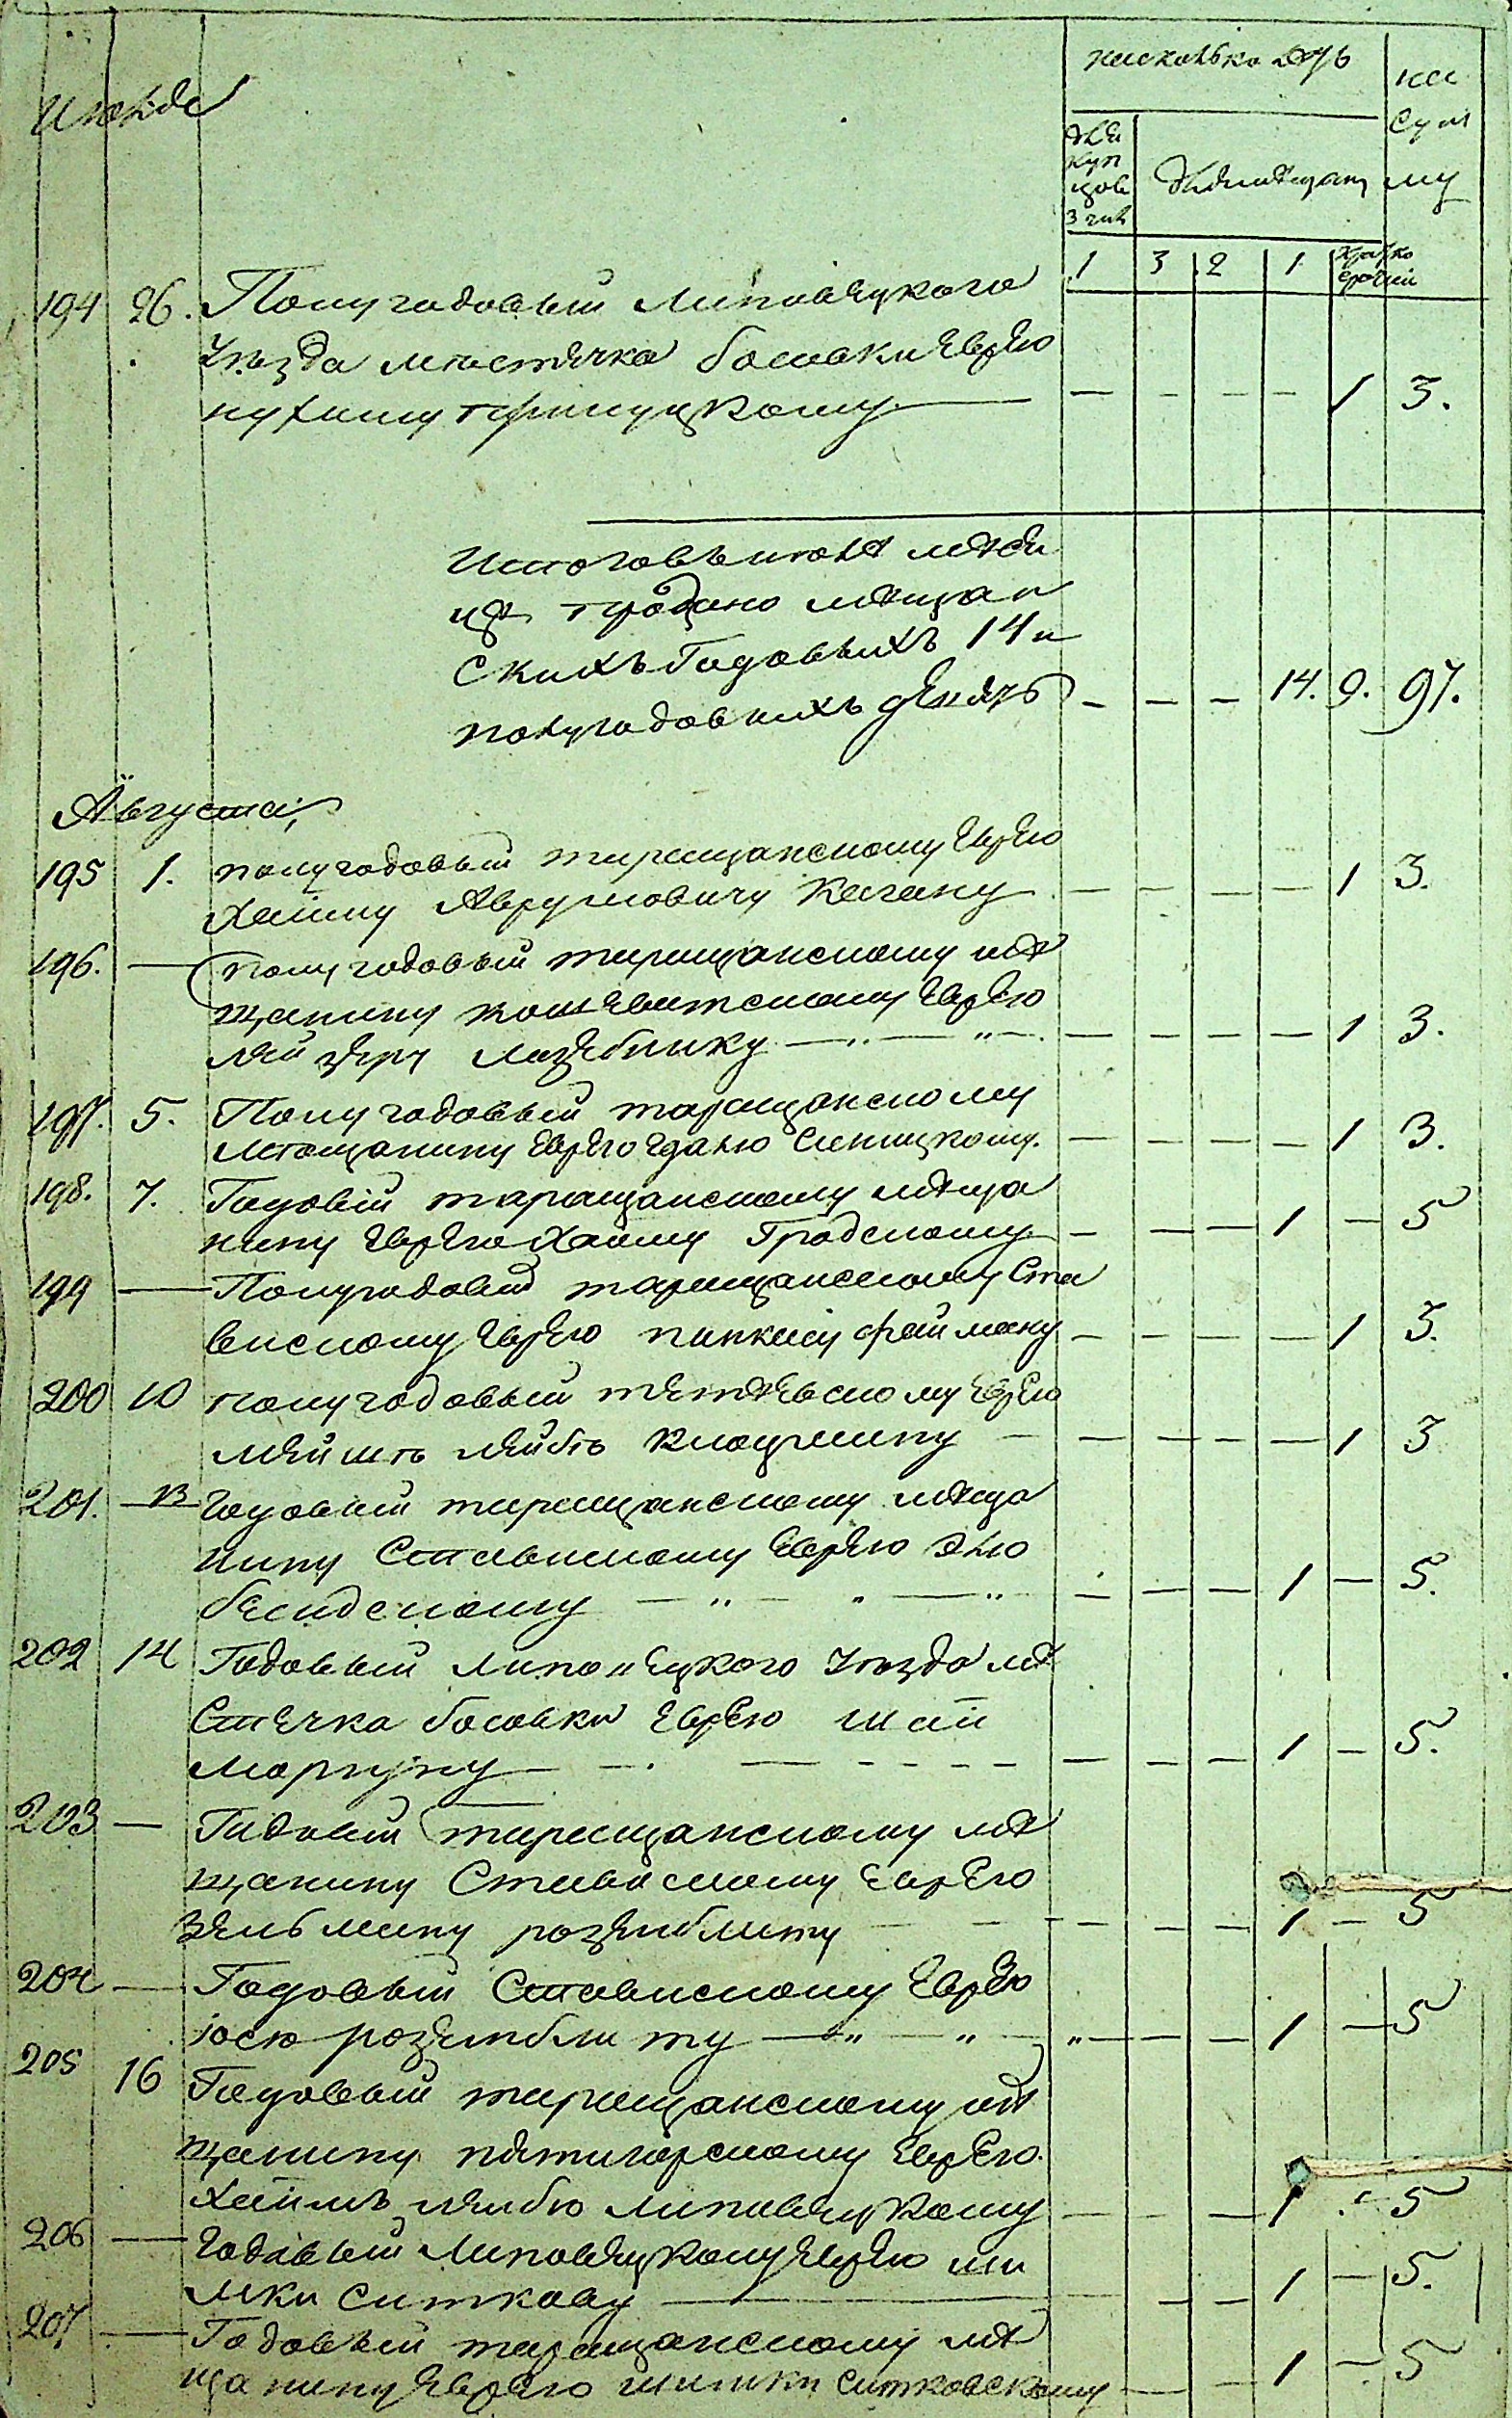 на сколько душ
на
сум
му
Июля
для
куп
цов
3 гил
для мещан
1 3 2 1 крат ко
срочн
194 26. Полугодовый Липовецкого
Уъзда мъстечка босовки Еврею
Нухиму прилуцкому — — — — — 1 3.
Итого въ июлѣ мѣся
цѣ продано мѣщан
скихъ Годовыхъ 14 и
полугодовыхъ девять — — — 14. 9. 97.
Августа,
195 1. полугодовый таращанскому Еврею
Хаиму Аврумовичу Кагану — — — — 1 3.
196. — полугодовый таращанскому мѣ
щанину кошеватскому Еврею
Лейзеру Лазебнику — — — — — 1 3.
197. 5. Полугодовый таращанскому
мъщанину Еврею Синицкому. — — — — 1 3.
198. 7. Годовій таращанскому мѣща
нину Еврею Хаиму Гродскому — — — 1 — 5
199 — Полугодовый таращанскому Ста
вискому Еврею пинкасу файману — — — — 1 3.
200 10 полугодовый тетіевскому Еврею
Мейшъ Лейбъ — — — — — 1 3
201. 13 годовый таращанскому мѣща
нину Ставискому Еврею Элю
бендскому — — — — 1 — 5.
202 14 Годовый Липовецкого Уъзда мѣ
стечка босовки Еврею Шаи
Маркузу — — — — 1 — 5.
203 — Годовый таращанскому мѣ
щанину Ставискому Еврею
Зельману розенблиту — — — 1 — 5
204 — Годовый Ставискому Еврею
Іосю розенблиту — — — 1 — 5
205 16 Годовый таращанскому мѣ
щанину пятигорскому Еврею.
Хаимъ Лейбю Липовецкому — — — 1 — 5
206 — годовый Липовецкому Еврею ши
мки Ситкову — — — 1 — 5.
207 — Годовый таращанскому мѣ
щанину Еврею шимки Ситковскому — — 1 — 5